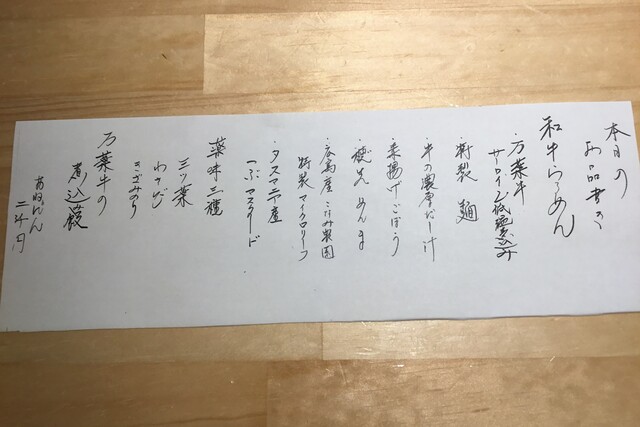 本日の
お品書き
和牛らーめん
・万葉牛
サーロイン低温煮込み
・特製 麺
・牛の濃厚だし汁
・素揚げごぼう
・穂先めんま
・広島産 梶谷農園
特製マイクロリーフ
・タスマニア産
つぶマスタード
薬味三種
三ツ葉
わさび
きざみのり
万葉牛の
煮込飯
おねだん
二千円